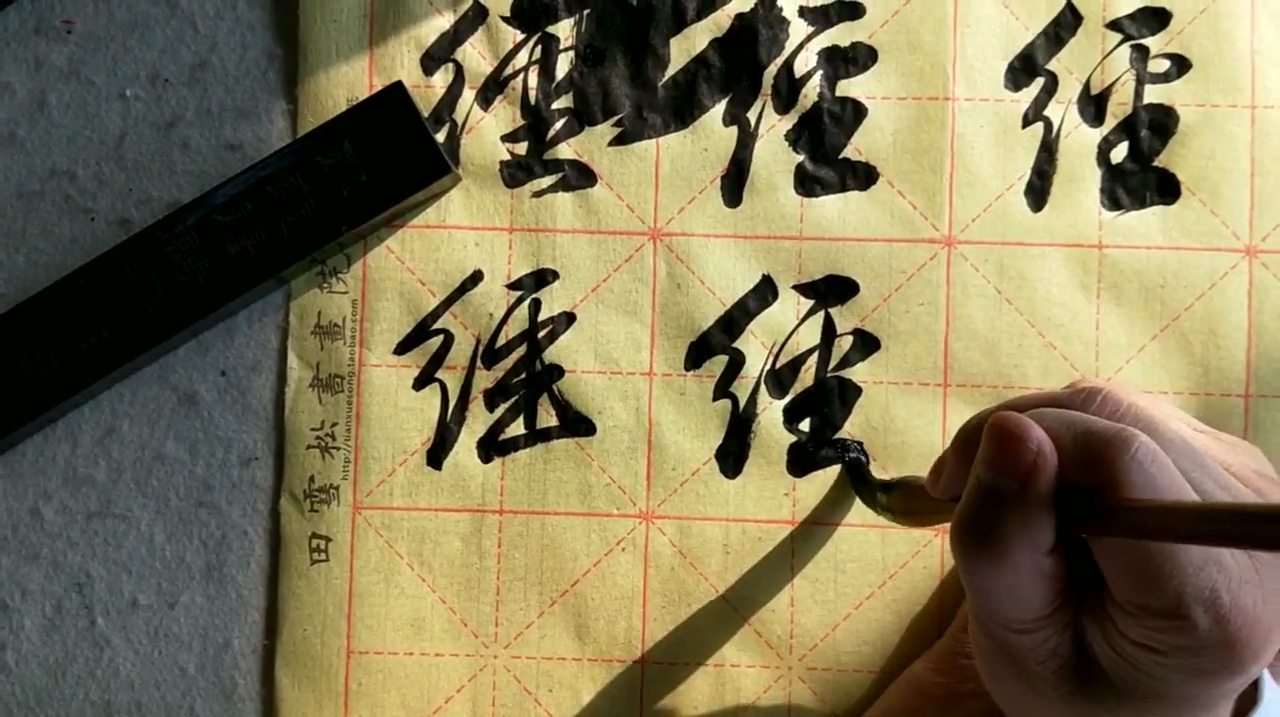 經 經 經
經 經
田雪松書畫院
http://tianxuesong.taobao.com